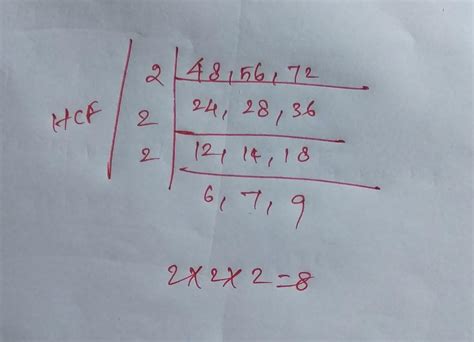 2 48, 56, 72
HCF 2 24, 28, 36
2 12, 14, 18
6, 7, 9
2 x 2 x 2 = 8